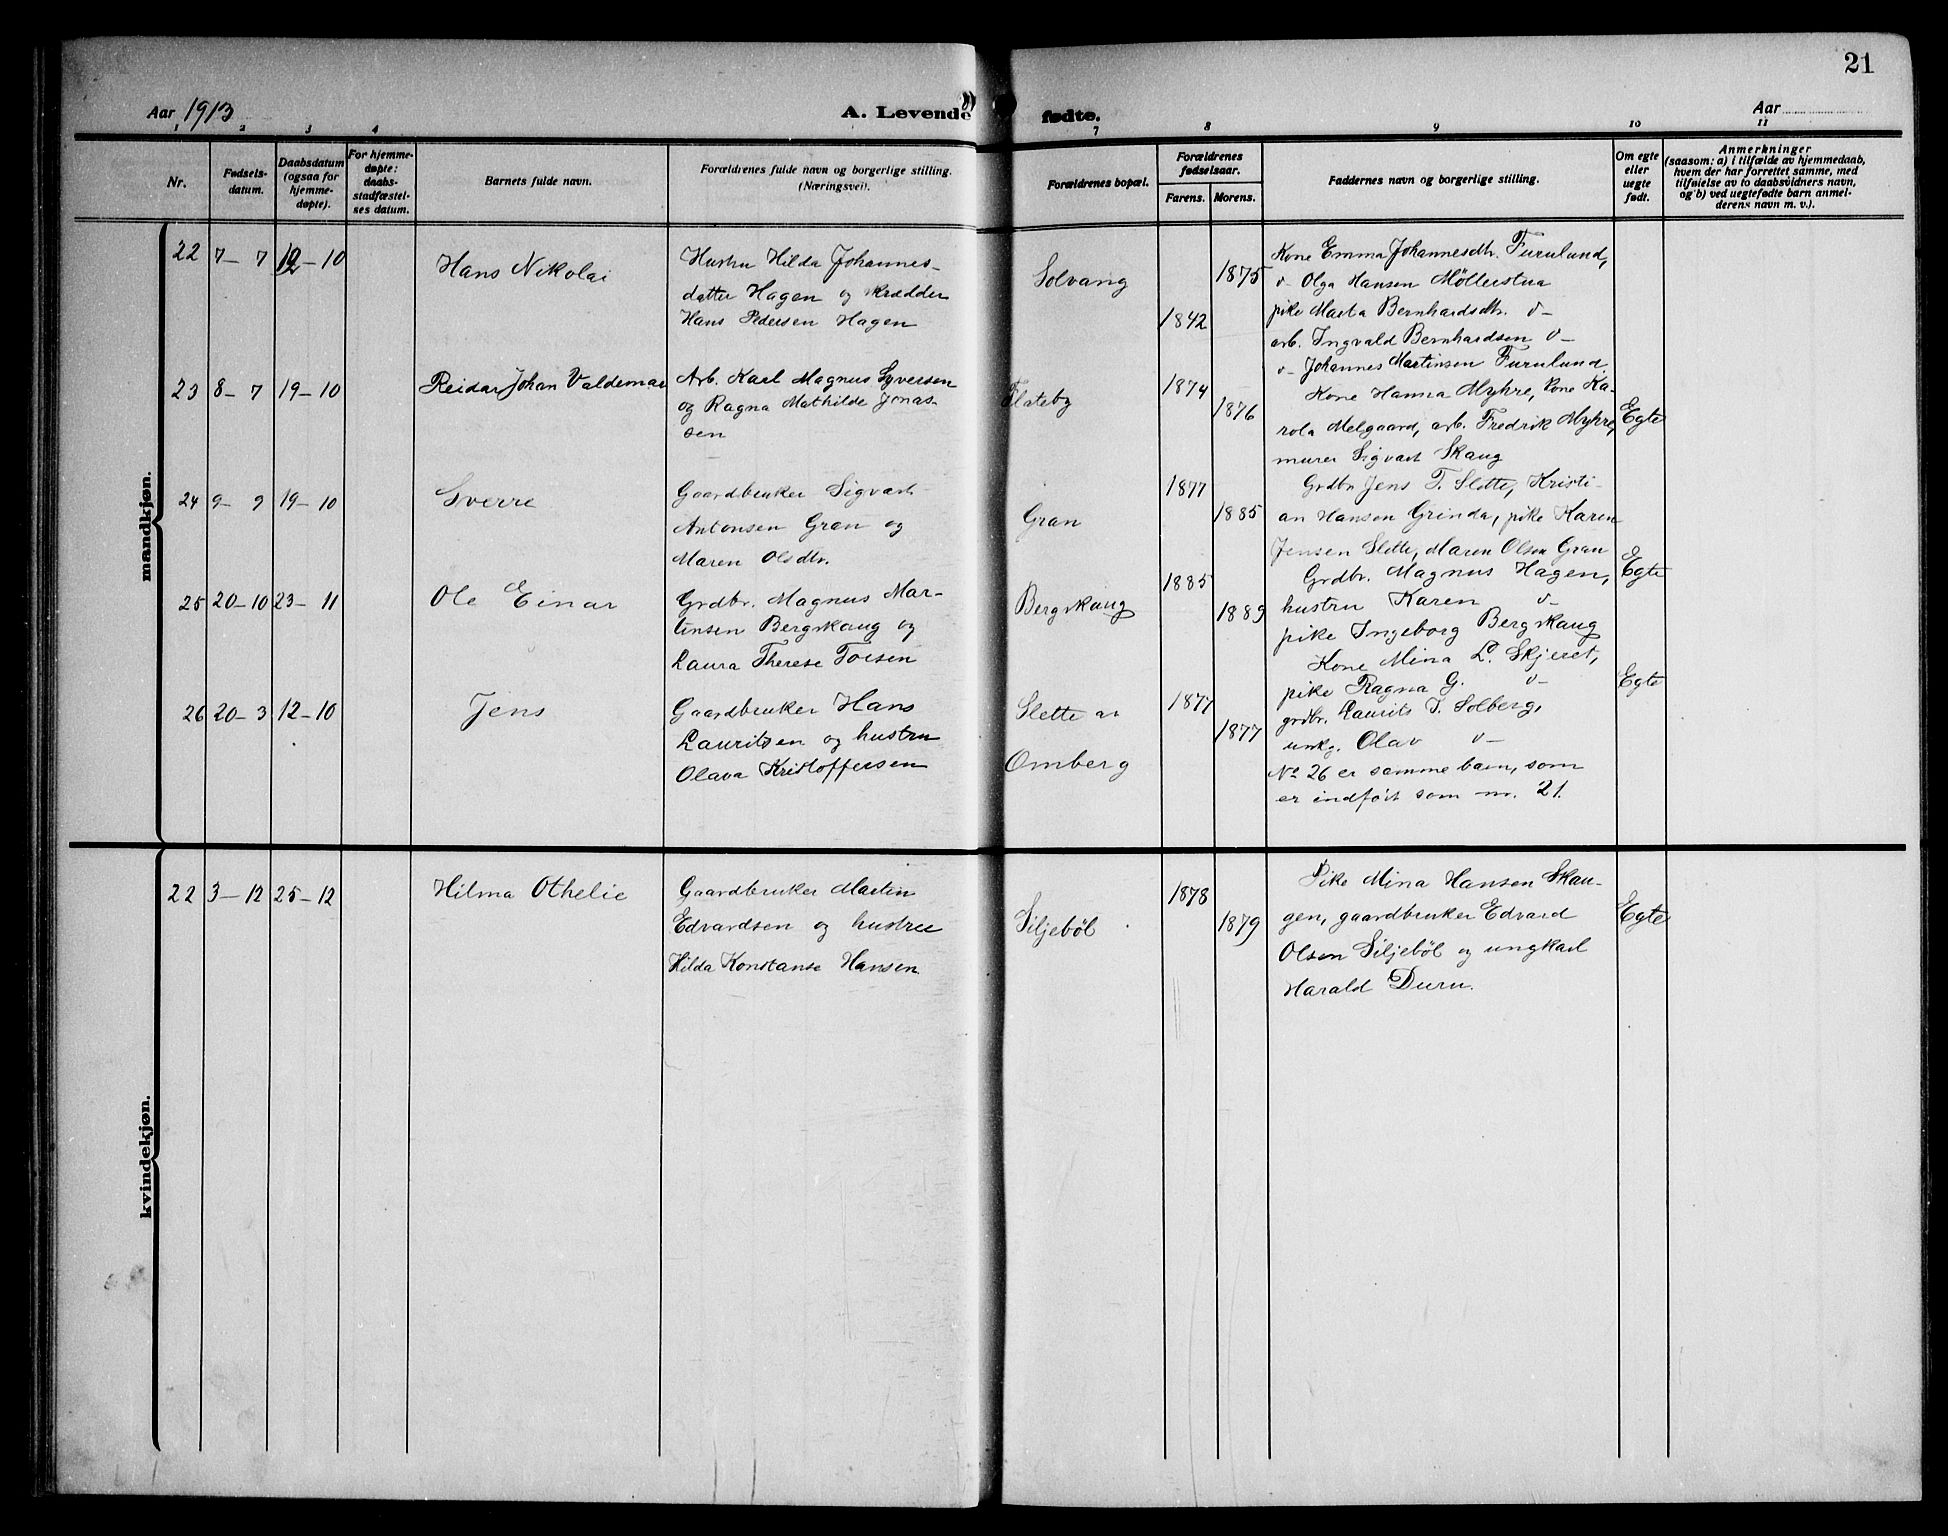 21
Aar 1913
A. Levende fødte.
Aar
1 2 3 4 7 8 9 10 11
Nr.
Fødsels-
datum.
Daabsdatum
(ogsaa for
hjemme-
døpte).
For hjemme-
døpte:
daabs-
stadfæstel-
ses datum.
Barnets fulde navn.
Forældrenes fulde navn og borgerlige stilling.
(Næringsvei).
Forældrenes bopæl.
Forældrenes
fødselsaar.
Farens. Morens.
Faddernes navn og borgerlige stilling.
Om egte
eller
uegte
født.
Anmerkninger
(saasom: a) i tilfælde av hjemmedaab,
hvem der har forrettet samme, med
tilføielse av to daabsvidners navn,
og b) ved uegtefødte barn anmel-
derens navn m. v.).
mandkjøn.
22 7–7 12–10
Hans Nikolai
Hustru Hilda Johannes-
datter Hagen og skrædder
Hans Pedersen Hagen
Solvang
1842
1875
Kone Emma Johannesdtr. Furulund,
v– Olga Hansen Möllerstua
pike Marta Bernhardsdtr. v–
arb. Ingvald Bernhardsen v–
v– Johannes Martinsen Furulund
23 8–7 19–10
Reidar Johan Valdemar
Arb. Karl Magnus Syversen
og Ragna Mathilde Jonas-
sen
Flateby
1874
1876
Kone Hanna Myhre, kone Ka-
rola Melgaard, arb. Fredrik Myhre,
murer Sigvart Skaug
Egte
24 9–9 19–10
Sverre
Gaardbruker Sigvart
Antonsen Gran og
Maren Olsdtr.
Gran
1877
1885
Grdbr Jens T. Slette, Kristi-
an Hansen Grinda, pike Karen
Jensen Slette, Maren Olsen Gran
Egte
25 20–10 23–11
Ole Einar
Grdbr. Magnus Mar-
tinsen Bergskaug og
Laura Therese Toesen
Bergskaug
1885
1889
Grdbr. Magnus Hagen,
hustru Karen v–
pike Ingeborg Bergskaug
Kone Mina L. Skjeret,
Egte
26 20–3 12–10
Jens
Gaardbruker Hans
Lauritsen og hustru
Olava Kristoffersen
Slette av
Omberg
1877
1877
pike Ragna G. v–
grdbr. Laurits I. Solberg,
unkg. Olav v–
No 26 er samme barn, som
er indført som nr. 21.
kvindekjøn.
22 3–12 25–12
Hilma Othelie
Gaardbruker Martin
Edvardsen og hustru
Hilda Konstanse Hansen
Siljeböl
1878
1879
Pike Mina Hansen Skau-
gen, gaardbruker Edvard
Olsen Siljeböl og ungkarl
Harald Duru.
Egte